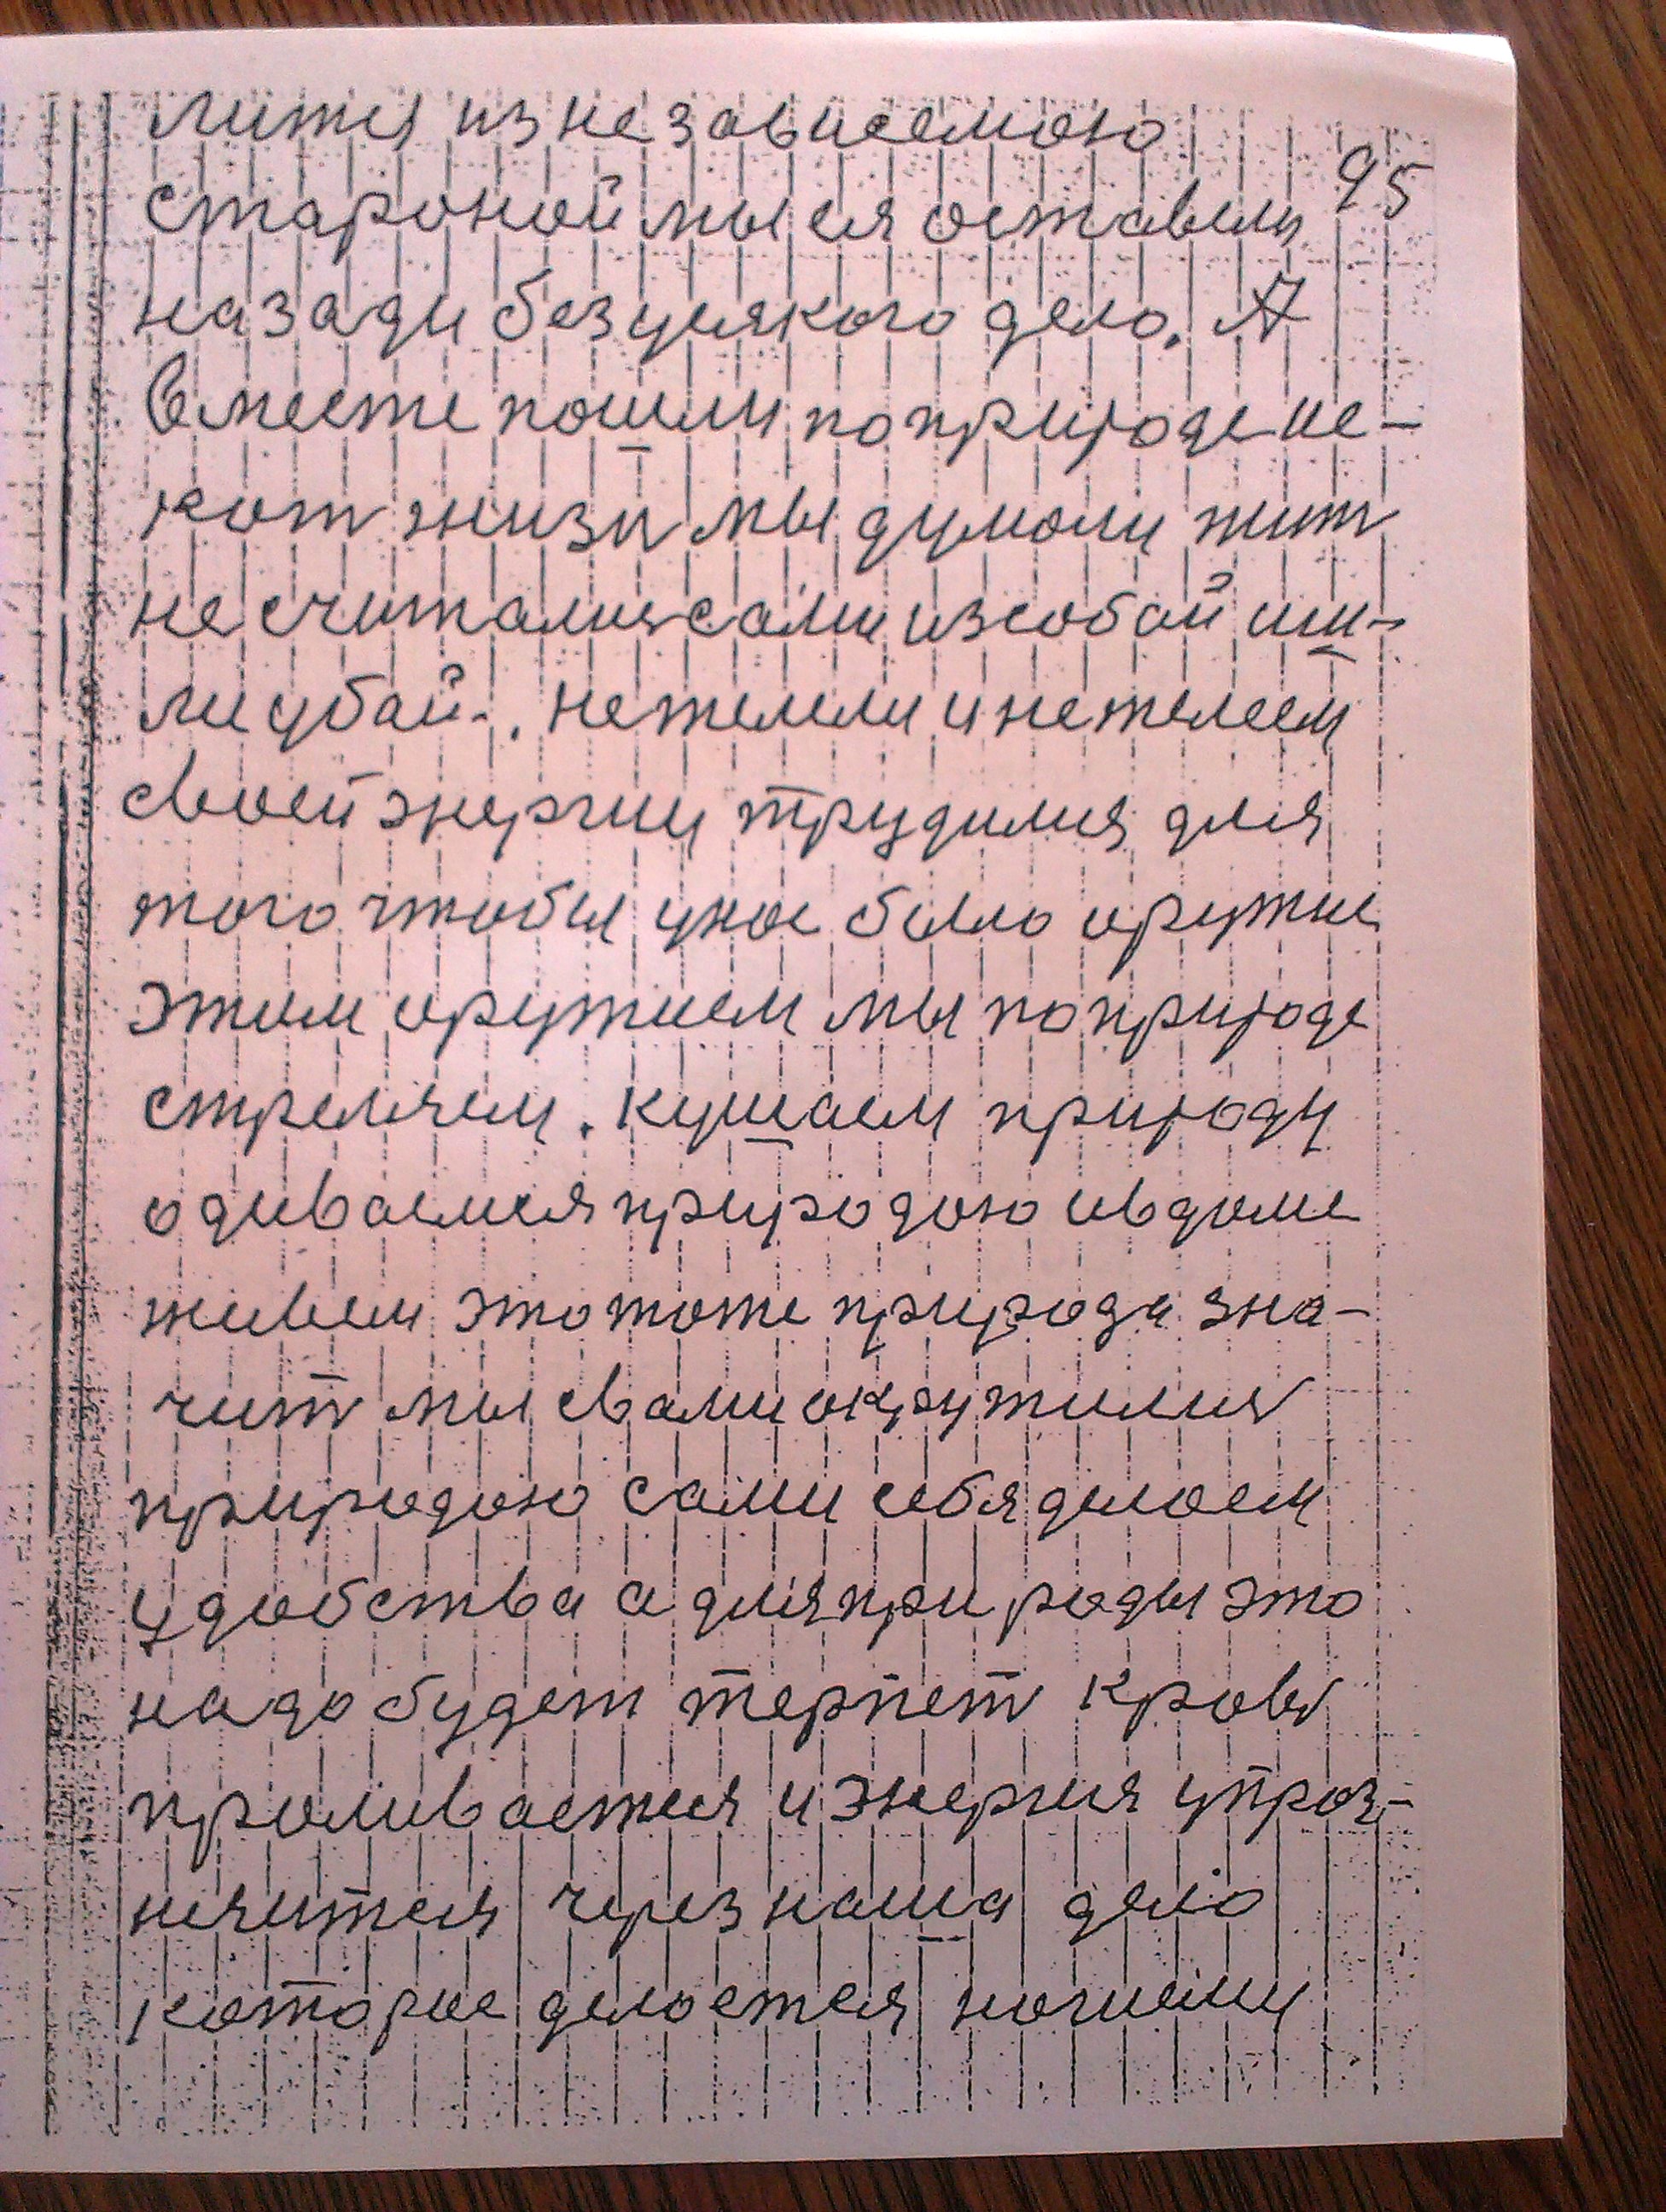 лится из не зависемою
95
староной мы ея оставели
назади без уcякого дело. А
вместе пошли по природе ис-
кат жизи мы думоли жит
не считалися сами из собай ши-
ли убай-. не желели и не желеем
своей энергии трудилися для
того чтобы у нас было оружие
этим оружием мы по природе
стреляем. кушаем природу
одиваемся природою и в доме
живем это тоже природа зна-
чит мы с вами окружилися
природою сами себя делоем
удобства а для природы это
надо будет терпет кровь
проливается и энергия упраз-
неяится через наша дело
которое делоется